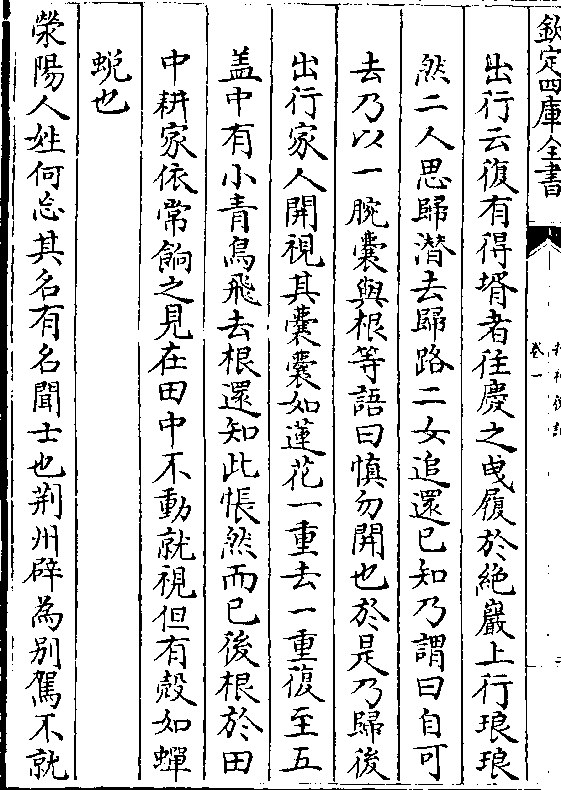 欽定四庫全書
卷一
出行云復有得壻者往慶之曵履於絶巖上行琅琅
然二人思歸潛去歸路二女追還已知乃謂曰自可
去乃以一腕囊與根等語曰慎勿開也於是乃歸後
出行家人開視其囊囊如蓮花一重去一重復至五
盖中有小青鳥飛去根還知此悵然而已後根於田
中耕家依常餉之見在田中不動就視但有殻如蟬
蛻也
滎陽人姓何忘其名有名聞士也荆州辟為别駕不就